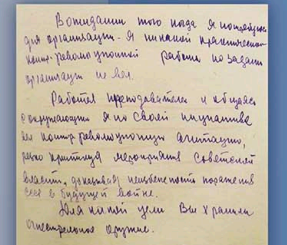 В ожидании того когда я понадоблюсь
для организации. Я никакой практической
контр-революционной работы по заданию
организации не вел.
Работая преподавателем и общаясь
с окружающими я по своей инициативе
вел контр-революционную агитацию,
резко критикуя мероприятия советской
власти, доказывая неизбежность поражения
СССР в будущей войне.
Для какой цели Вы хранили
огнестрельное оружие.